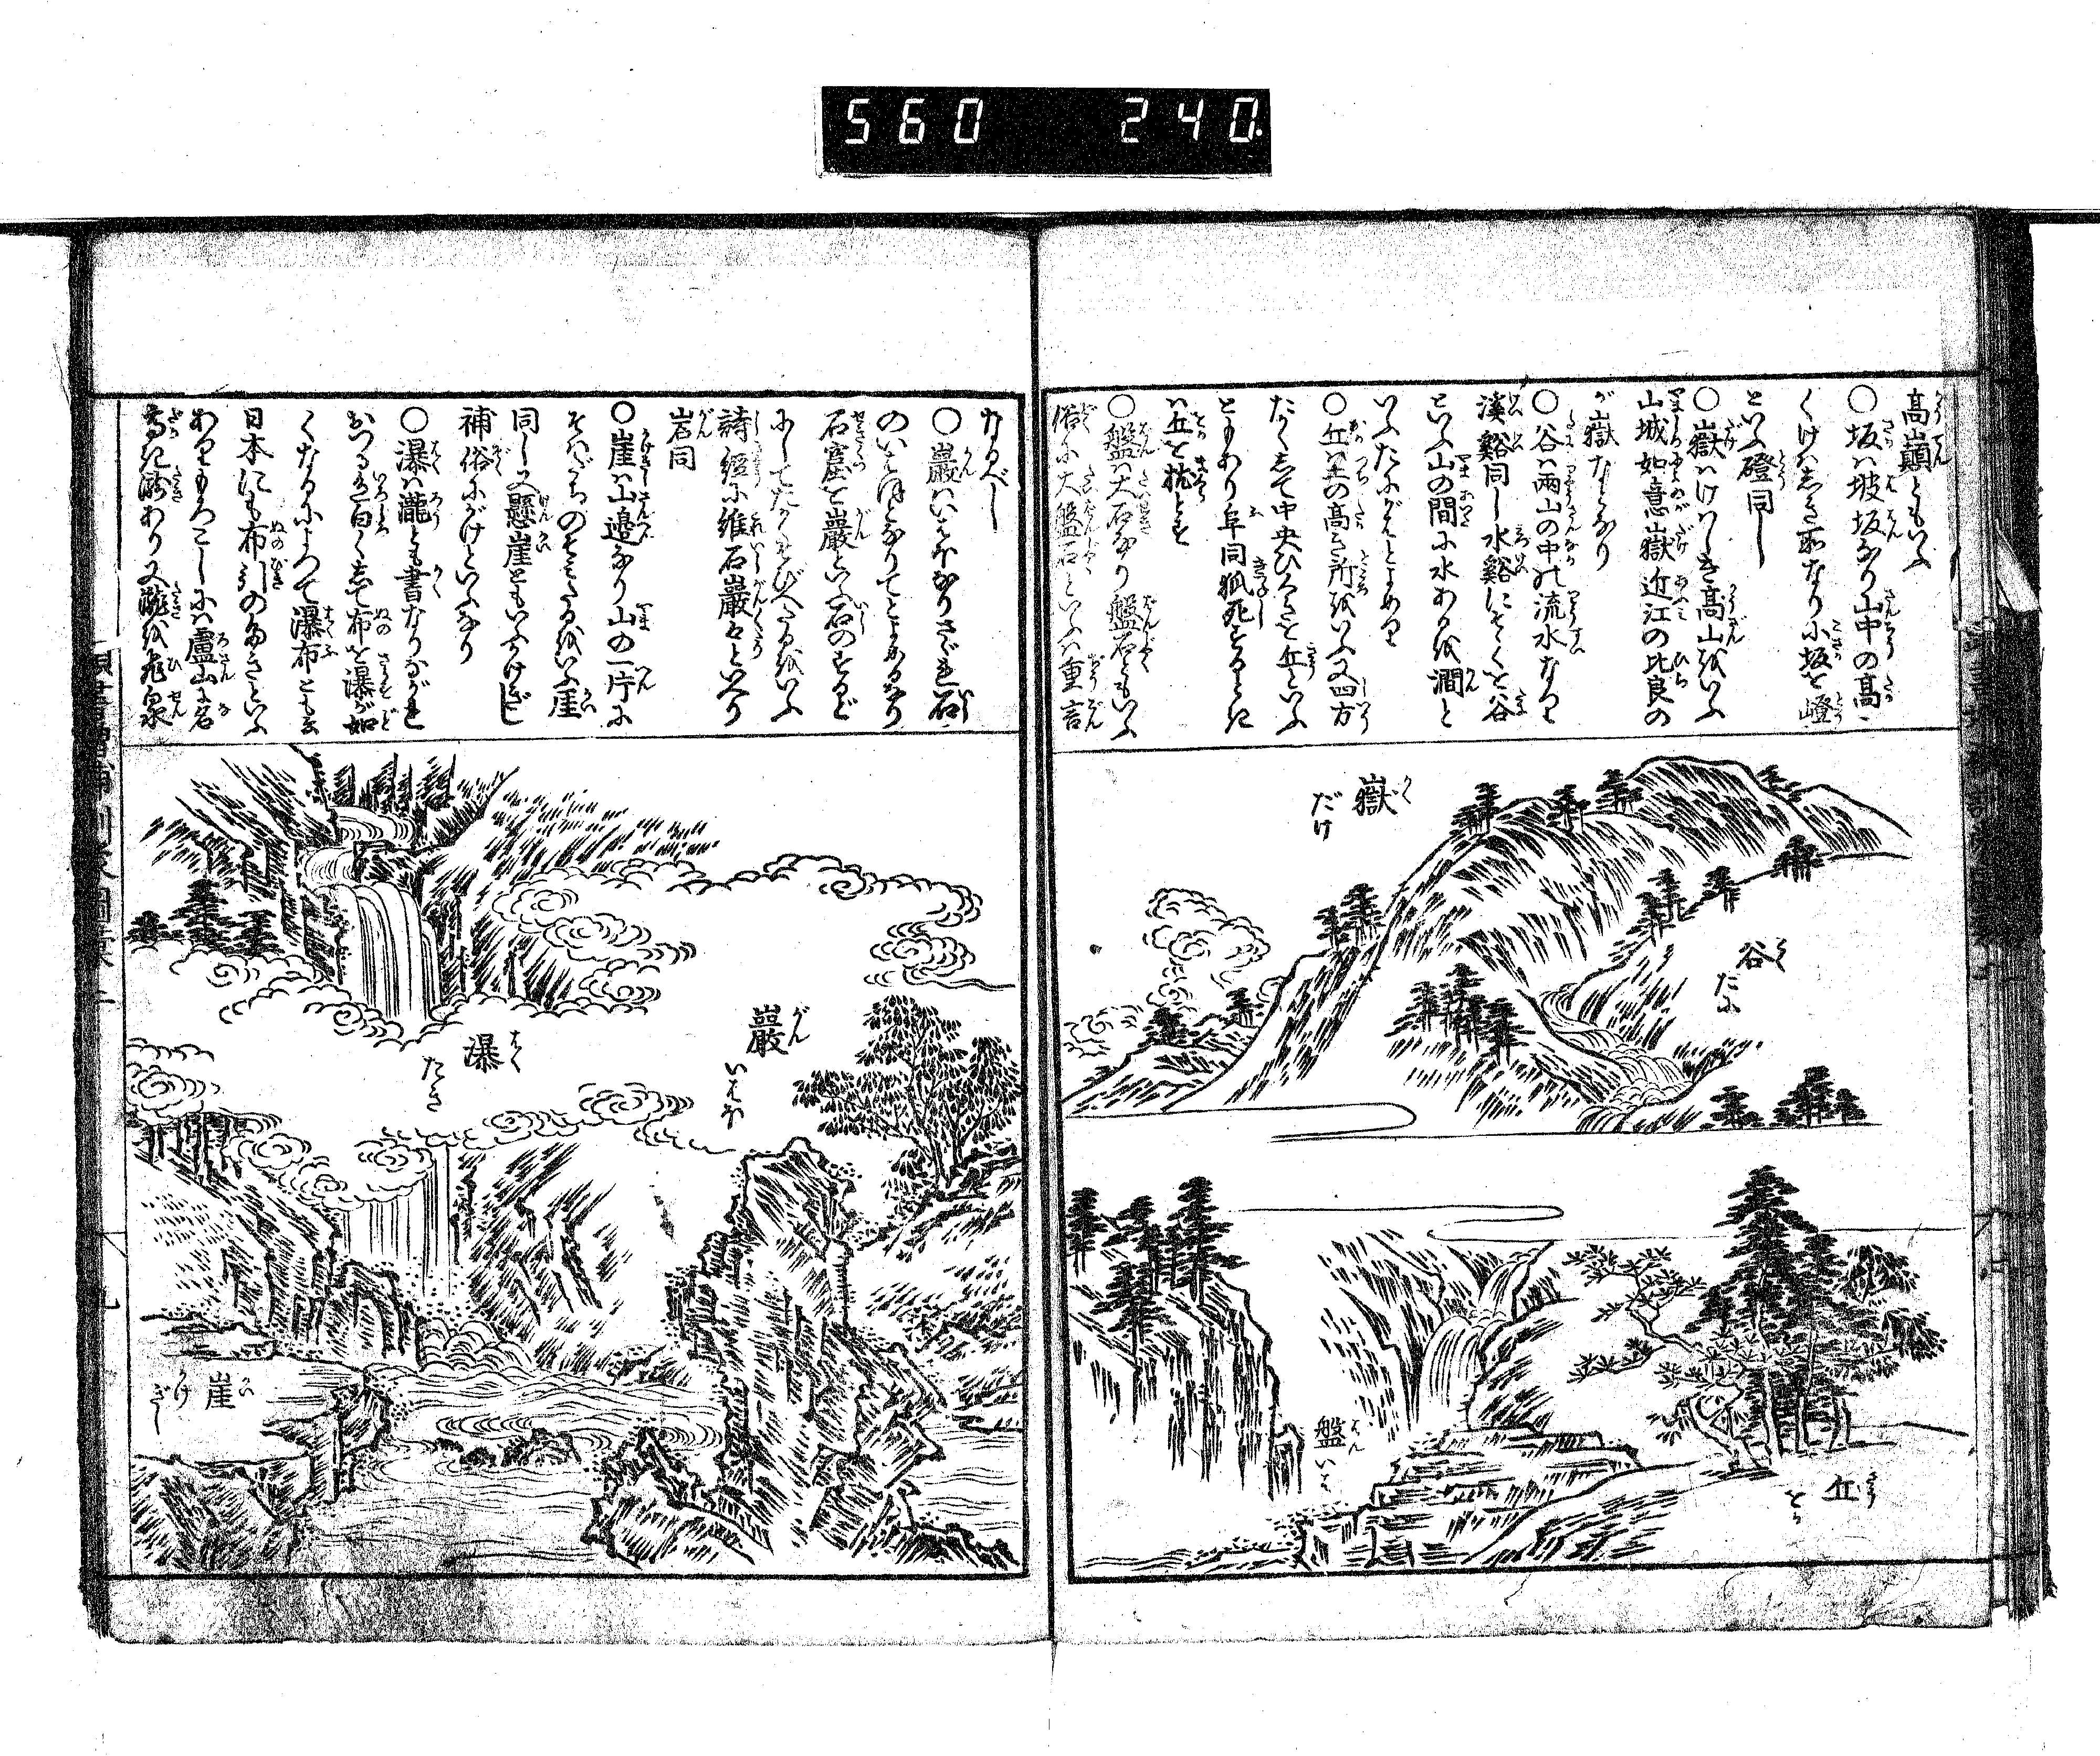 560 240
高巓ともいふ
○坂ハ坡坂なり山中の高
くけはしき所なり小坂を嶝
といふ磴同し
○嶽ハけはしき高山をいふ
山城如意嶽近江の比良の
が嶽なとなり
○谷ハ両山の中の流水なり
渓谿同し水谿にそゝくを谷
といふ山の間に水あるを澗と
いふたにがはとよめり
○丘ハ土の高き所をいふ又四方
たかくして中央ひろきを丘といふ
ともあり阜同狐死するときに
ハ丘を枕とす
○盤ハ大石なり盤石ともいふ
俗に大盤石といふハ重言
嶽 がく
だけ
谷 こく
たに
盤 ばん
いは
丘 きう
をか
なるべし
○巌ハいはほなりさゞれ石
のいはほとなりてとよめるなり
石窟を巌といふ石のするど
にしてたかくそびへたるをいふ
詩経に維石巌々といへり
岩同
○崖ハ山邉なり山の一片に
そばだちのぞミたるをいふ崖
同し又懸崖ともいふかけぎし
補俗にがけといふなり
○瀑ハ瀧とも書なりながれ
おつる色白くして布を瀑が如
くなるによつて瀑布とも云
日本にも布引のたきといふ
ありもろこしにハ廬山に名
高き瀧あり又瀧を飛泉
巌 がん
いはほ
瀑 ばく
たき
崖 がい
がけ
ぎし